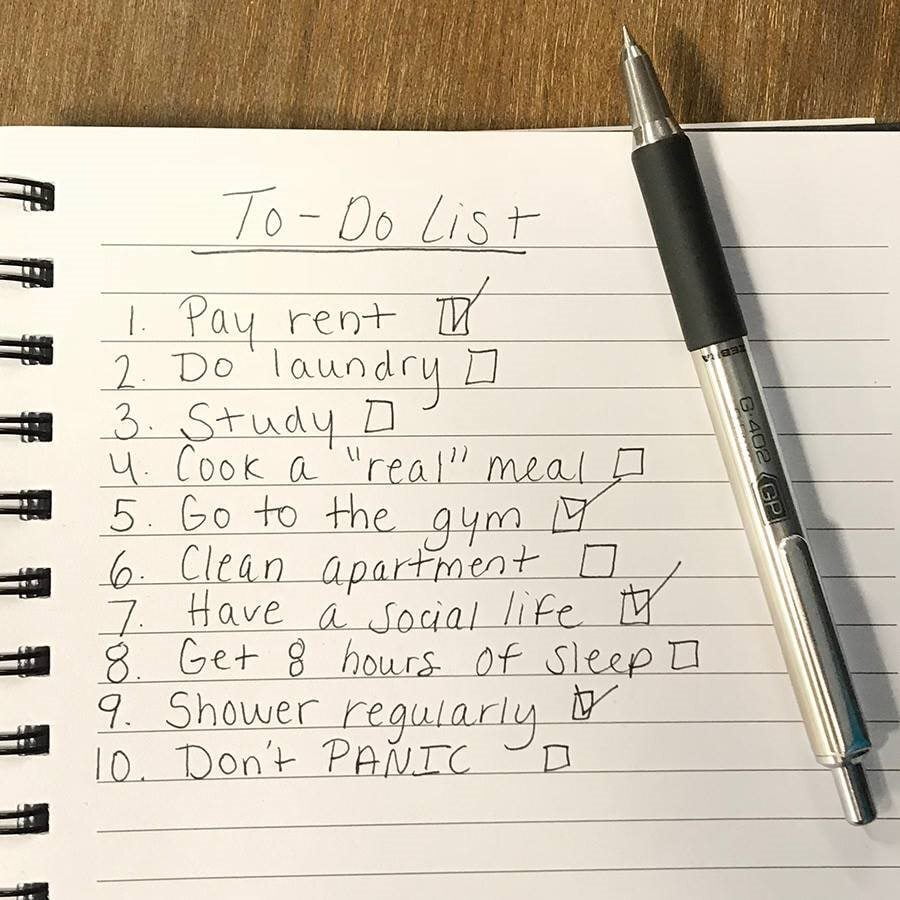 To-Do List
1. Pay rent ☑
2. Do laundry ☐
3. Study ☐
4. Cook a "real" meal ☐
5. Go to the gym ☑
6. Clean apartment ☐
7. Have a social life ☑
8. Get 8 hours of sleep ☐
9. Shower regularly ☑
10. Don't PANIC ☐
ZEBRA
G-402